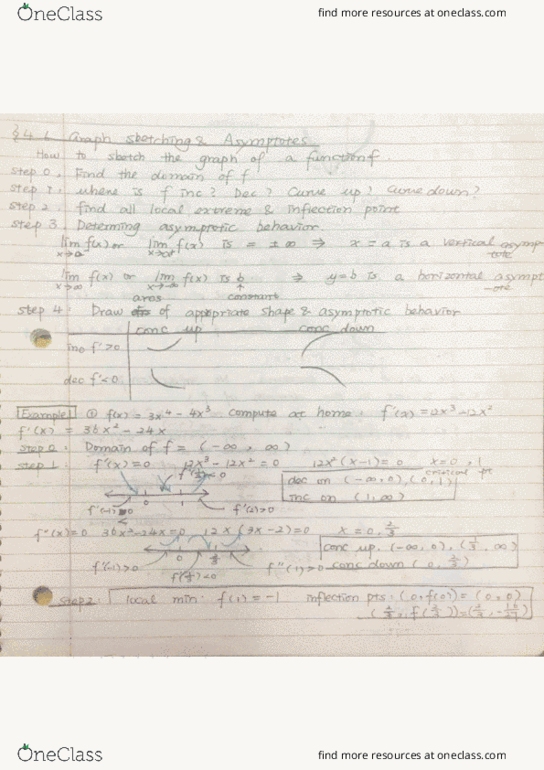 OneClass find more resources at oneclass.com
§4.6 Graph sketching & Asymptotes
How to sketch the graph of a function f.
Step 0. Find the domain of f
Step 1: where is f inc? Dec? Curve up? Curve down?
Step 2: find all local extreme & inflection point
Step 3: Determing asymptotic behavior
lim x→a⁻ f(x) or lim x→a⁺ f(x) is = ±∞ ⇒ x = a is a vertical asymptote
lim x→∞ f(x) or lim x→-∞ f(x) is b ⇒ y=b is a horizontal asymptote
constant
arcs
Step 4: Draw of appropriate shape & asymptotic behavior
conc up conc down
inc f'>0
dec f'<0
Example ① f(x) = 3x⁴ - 4x³ compute at home: f'(x) = 12x³-12x²
f''(x) = 36x² - 24x
Step 0: Domain of f = (-∞, ∞)
Step 1: f'(x)=0 12x³-12x²=0 12x²(x-1)=0 x=0, 1
critical pt
dec on (-∞,0), (0,1)
0 1 inc on (1,∞)
f'(2)>0
f''(x)=0 36x²-24x=0 12x(3x-2)=0 x=0, 2/3
0 2/3 conc up. (-∞,0), (2/3, ∞)
f''(-1)>0 f''(1)>0 conc down (0, 2/3)
Step 2: local min: f(1)=-1 inflection pts: (0,f(0))=(0,0)
(2/3, f(2/3))=(2/3, -16/27)
OneClass find more resources at oneclass.com